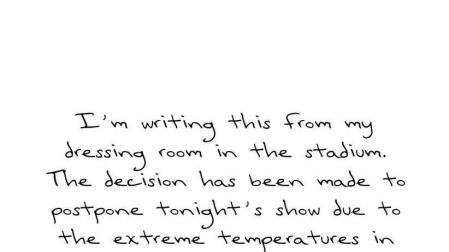 I'm writing this from my
dressing room in the stadium.
The decision has been made to
postpone tonight's show due to
the extreme temperatures in